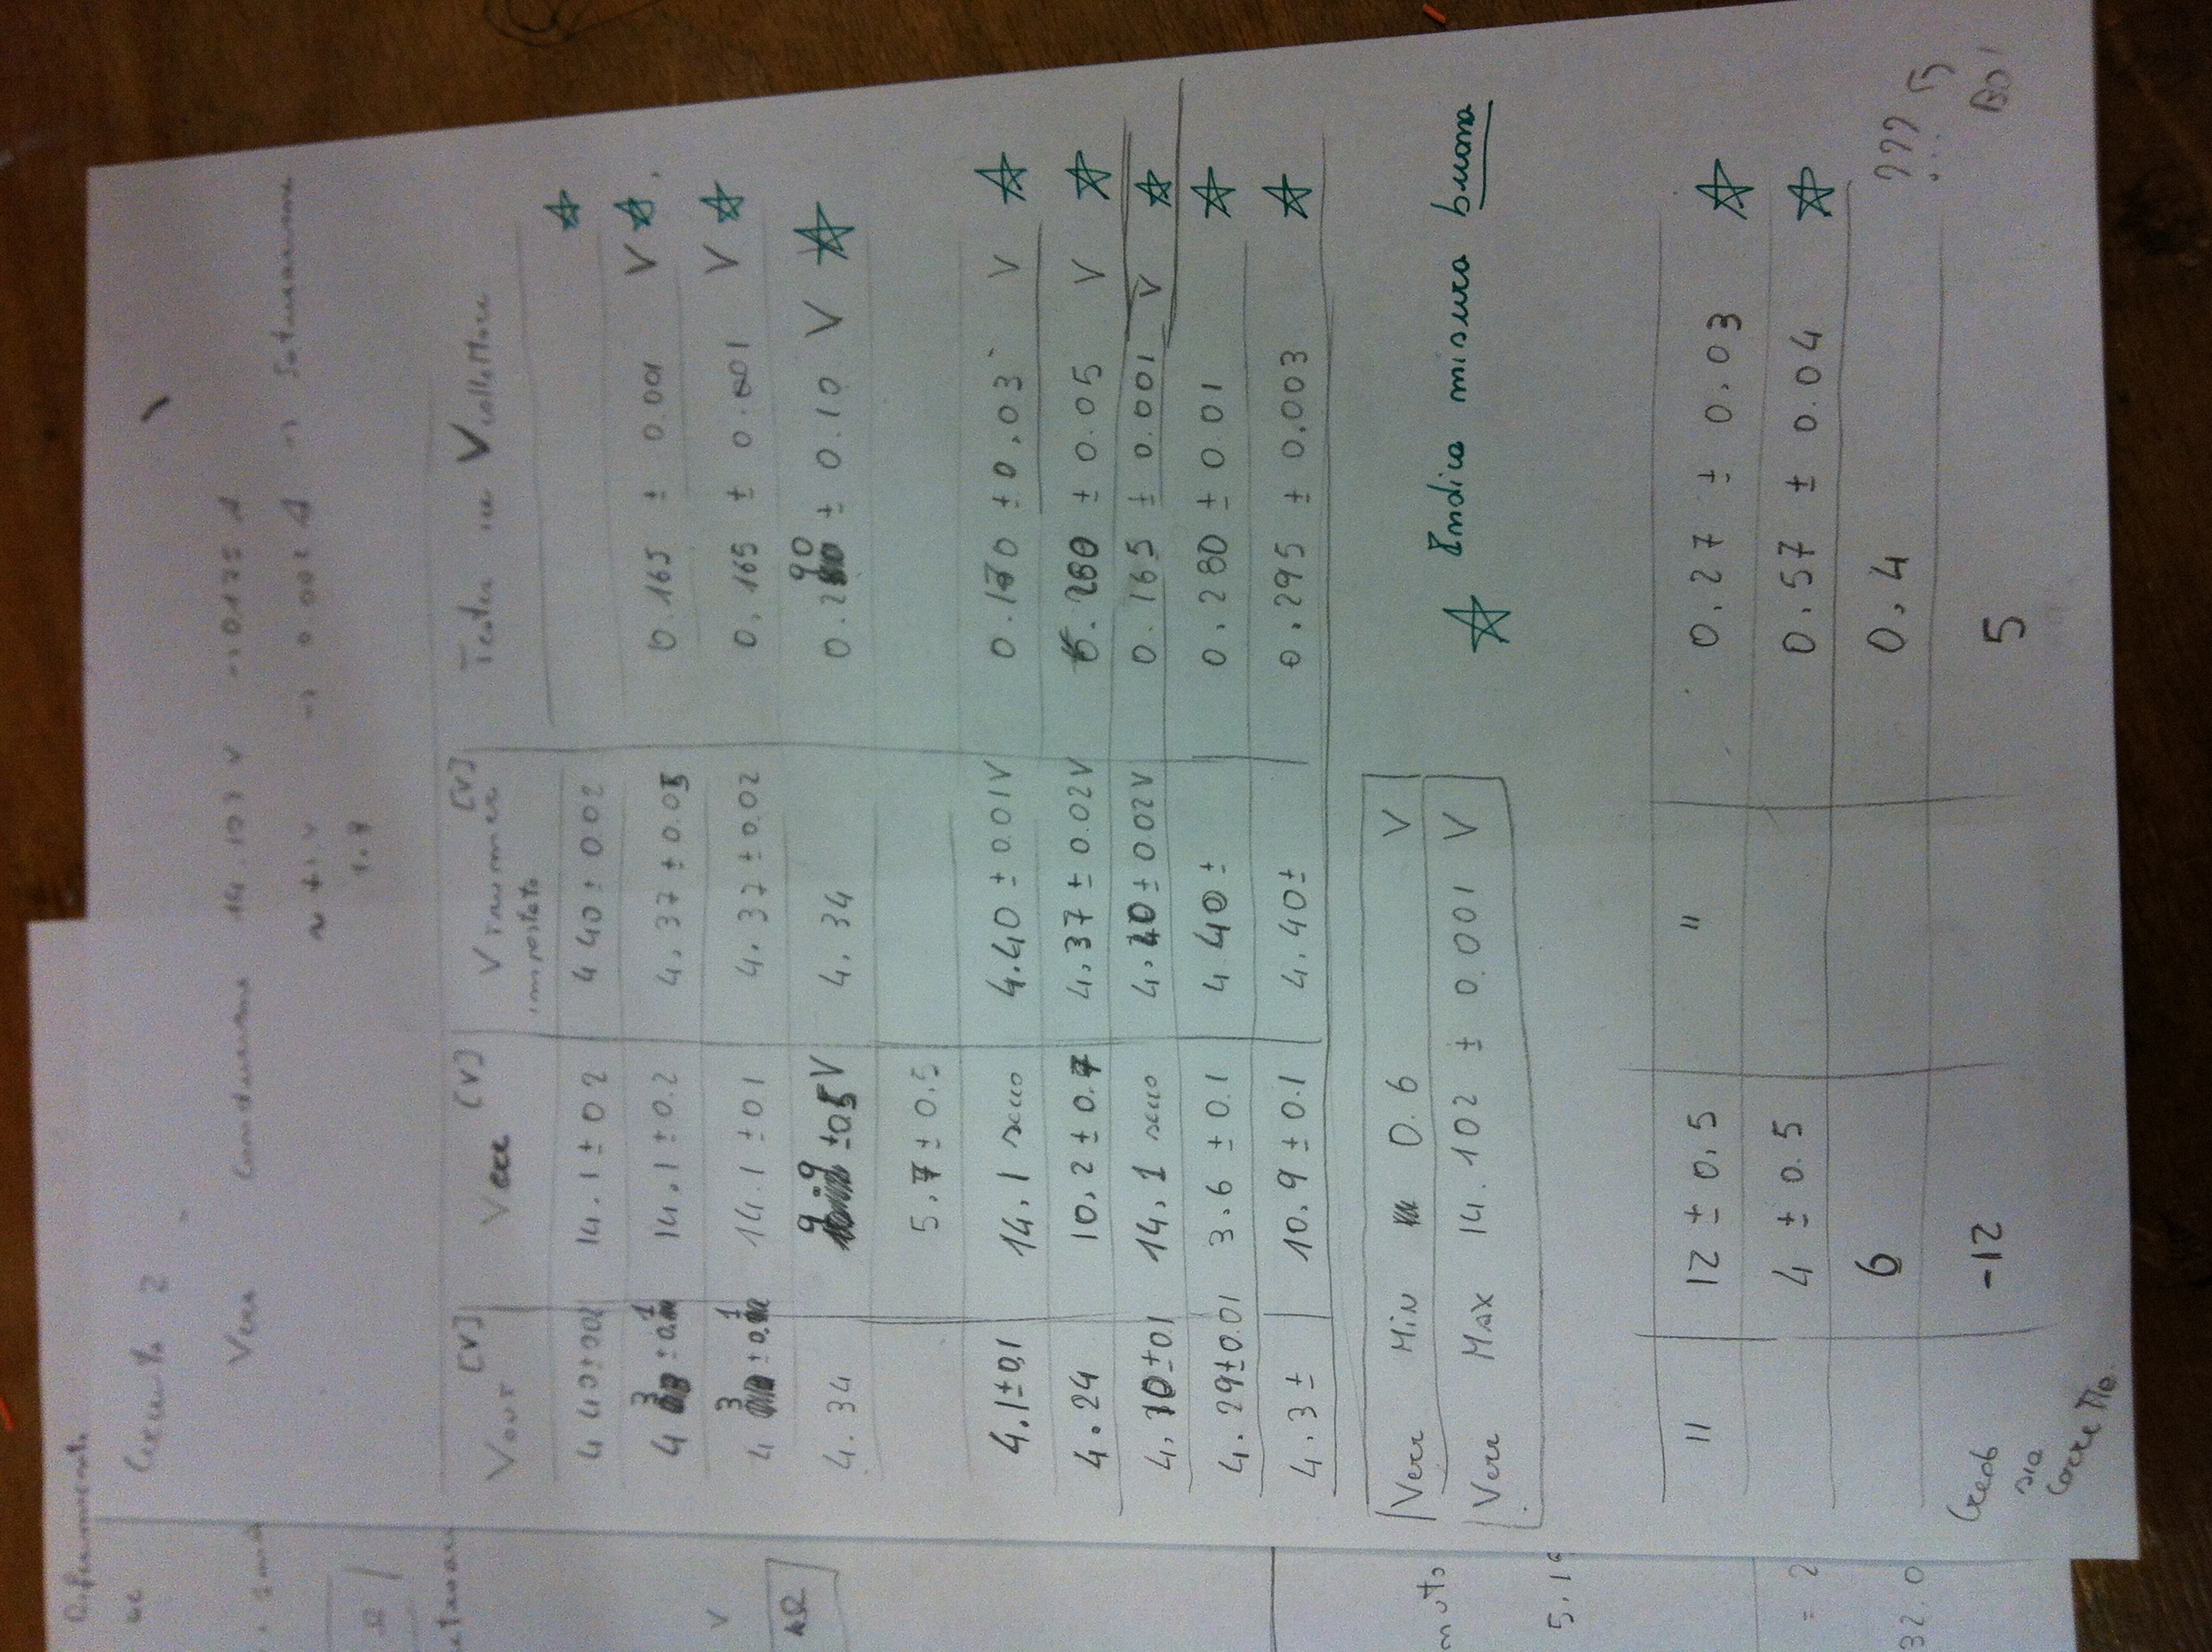 Riferimento
Circuito 2
Verr Conduzione 14.102 V → 0.175 A
→ 0.002 A → Saturazione
1.8
Vout [V] Verr [V] V trimmer [V] Tester in Vcollettore
impostato
4.40±0.02 14.1 ± 0.2 4.40 ± 0.02 ☆
4.3 ± 0.1 14.1 ± 0.2 4.37 ± 0.05 0.165 ± 0.001 V ☆
4.3 ± 0.1 14.1 ± 0.1 4.37 ± 0.02 0.165 ± 0.001 V ☆
4.34 9.9 ± 0.5 V 4.34 0.290 ± 0.10 V ☆
5.7 ± 0.5
4.1±0.1 14.1 secco 4.40 ± 0.01V 0.170 ± 0.03 V ☆
4.24 10.2 ± 0.7 4.37 ± 0.02V 0.280 ± 0.05 V ☆
4.10±0.1 14.1 secco ± 0.02V 0.165 ± 0.001 V ☆
4.29±0.01 3.6 ± 0.1 4.40 ± 0.280 ± 0.01 ☆
4.3 ± 10.9 ± 0.1 4.40± 0.295 ± 0.003 ☆
Verr Min 0.6 V
Verr Max 14.102 ± 0.001 V
☆ Indica misura buona
" 12 ± 0.5 " 0.27 ± 0.03 ☆
4 ± 0.5 0.57 ± 0.04 ☆
6 0.4 ???
Credo -12 5 Bo!
sia
corretto
nuto
5.19
= 2
32.0